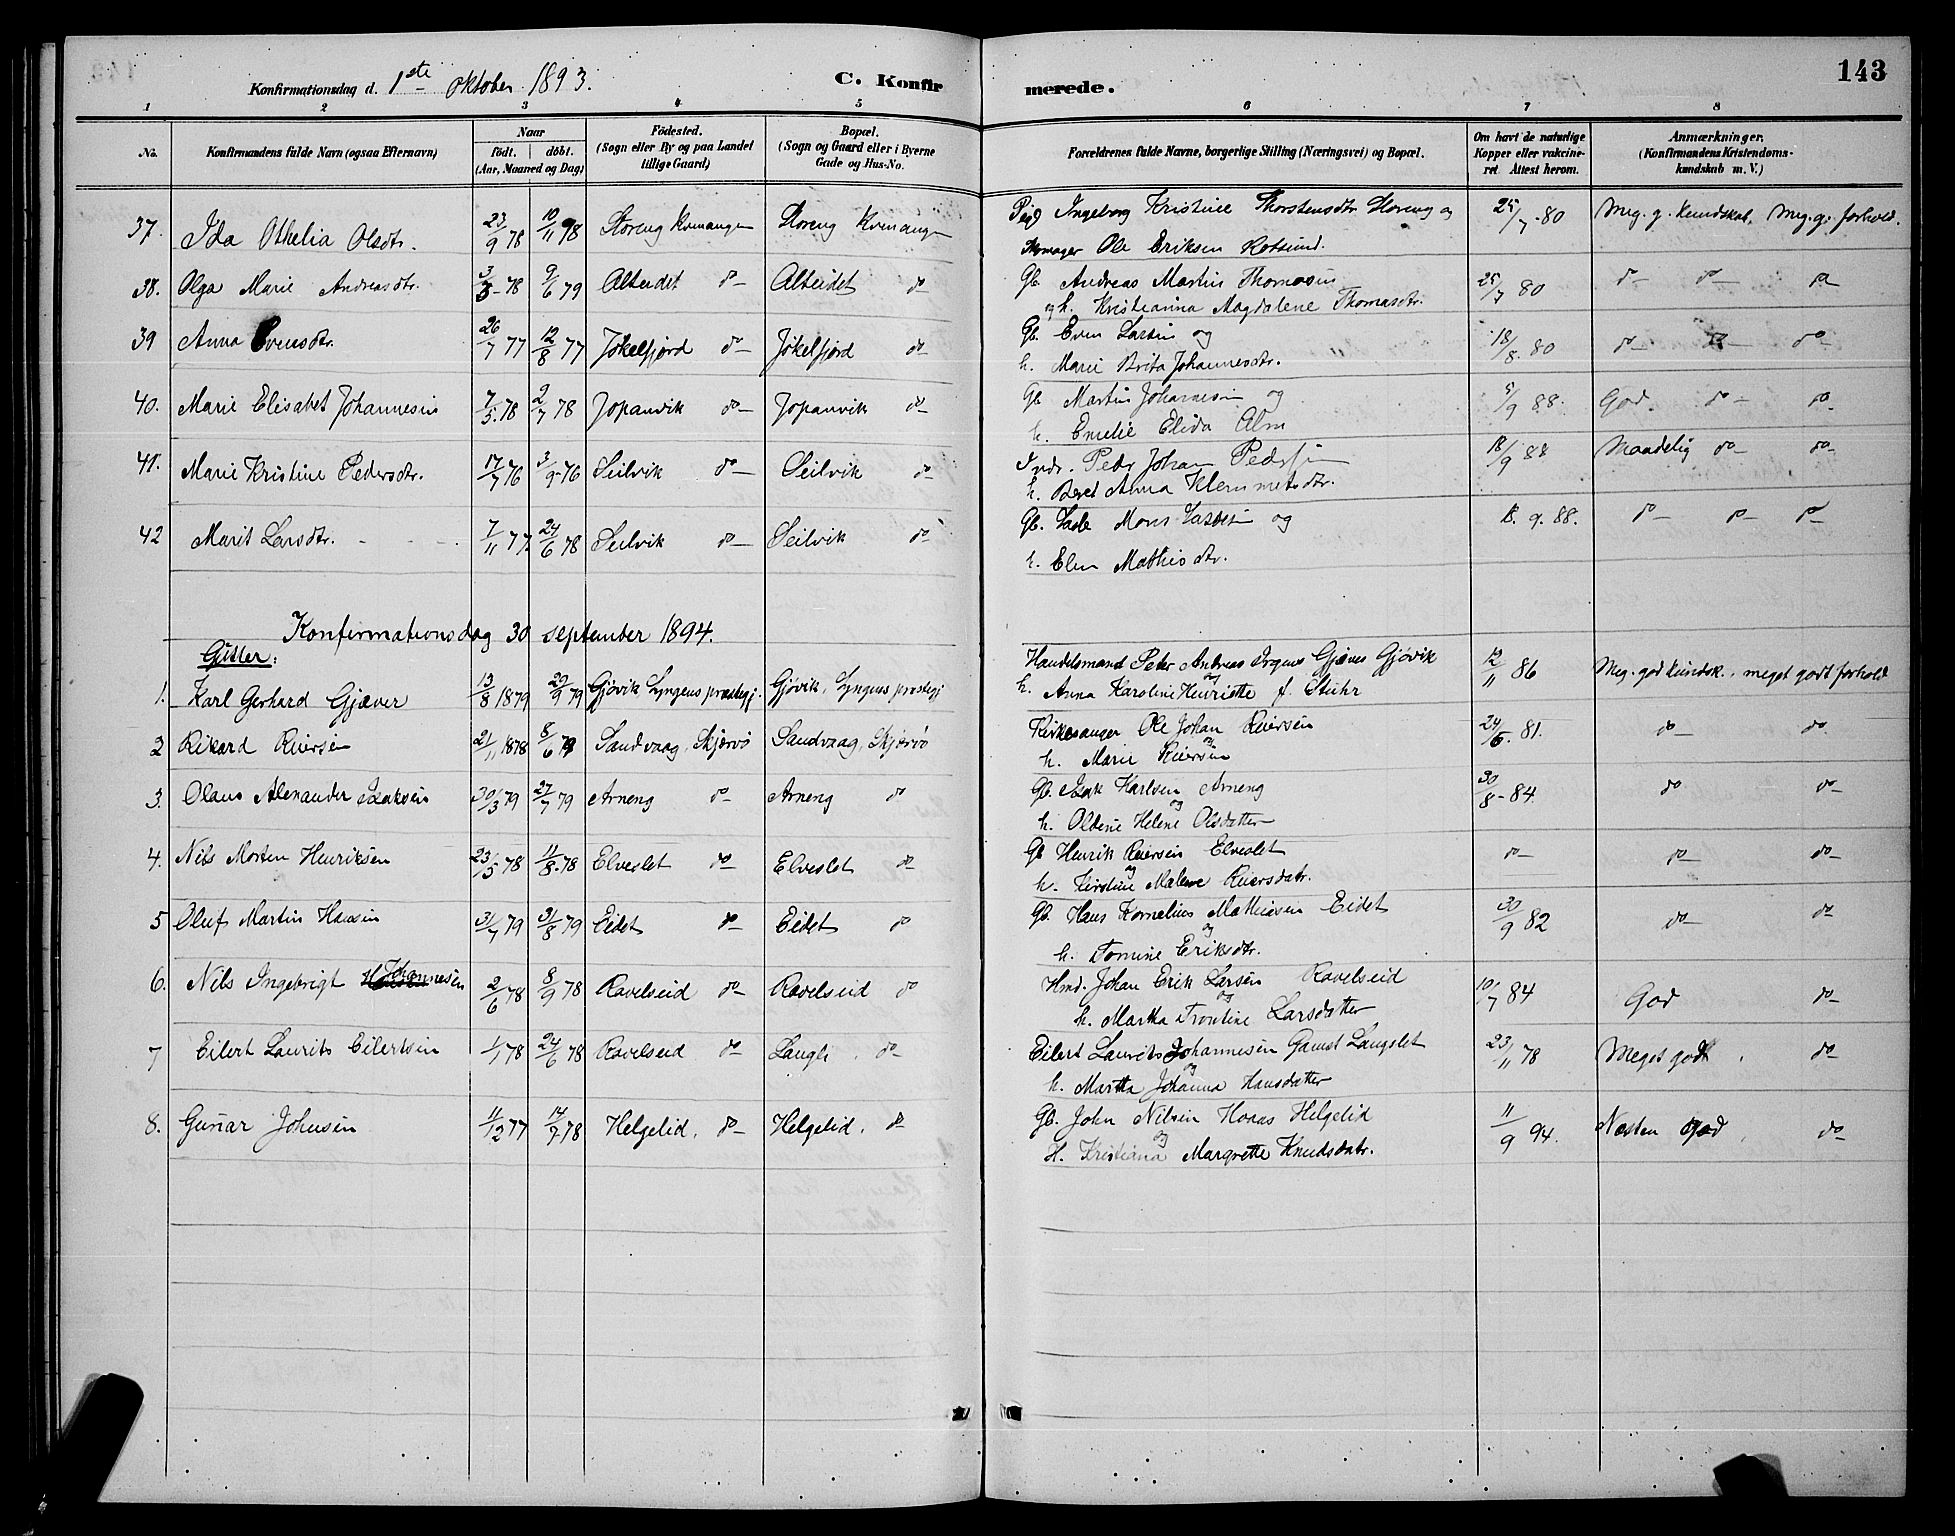 143
Konfirmationsdag d. 1ste oktober 1893. C. Konfirmerede.
1 2 3 4 5 6 7 8
No. Konfirmandens fulde Navn (ogsaa Efternavn) Naar født. døbt. (Aar, Maaned og Dag) Fødested. (Sogn eller By og paa Landet tillige Gaard) Bopæl. (Sogn og Gaard eller i Byerne Gade og Hus-No. Forældrenes fulde Navne, borgerlige Stilling (Næringsvei) og Bopæl. Om havt de naturlige Kopper eller vakcineret. Attest herom. Anmærkninger. (Konfirmandens Kristendomskundskab m. V.)
37. Ida Othelia Olsdtr. 23/9 78 10/11 98 Storeng Kvænangen Storeng Kvænangen Pige Ingeborg Kristine Thorstensdtr. Storeng og 25/7-80 Meg. g. kundskab, Meg. g. forhold.
Ole Eriksen Rotsund.
38. Olga Marie Andreasdtr. 3/3-78 9/6 79 Alteidet do Alteidet do Gb. Andreas Martin Thomasen 25/7 80 do do do
og h. Kristianna Magdalene Thomasdtr.
39 Anna Evensdtr. 26/7 77 12/8 77 Jökelfjord do Jökelfjord do Gb. Even Larsen og 18/8. 80 do do do
h. Marie Brita Johannesdtr.
40. Marie Elisabet Johannesen 7/5.78 2/7 78 Jopanvik do Jopanvik do Gb. Martin Johannesen og 5/9 88. God do do
h. Emelie Elida Alm
41. Marie Kristine Pedersdtr. 17/7 76 3/9 76 Seilvik do Seilvik do Indr. Peder Johan Pedersen 18/9 88 Maadelig do do
h. Beret Anna Klemmetsdtr.
42 Marit Larsdtr. 7/11 77. 24/6 78 Seilvik do Seilvik do Gb. Lars Mons Larsen og 18. 9. 88. do do do
h. Elen Mathisdtr.
Konfirmationsdag 30 september 1894.
Gutter:
1. Karl Gerhard Gjæver 13/8 1879 29/9 79 Gjövik Lyngens prestegj. Gjövik, Lyngens prestegj Handelsmand Peter Andreas Gjæver Gjövik 12/11 86 Meg. god kundsk., meget godt forhold
og h. Anna Karoline Henriette f. Stuhr
2 Rikard Reiersen 21/11 1878 8/6 79 Sandvaag, Skjærvö Sandvaag, Skjærvö Kirkesanger Ole Johan Reiersen 24/6. 81. do do
og h. Marie Reiersen
3. Olaus Alexander Isaksen 30/3 79 27/7 79 Arneng do Arneng do Gb. Isak Karlsen Arneng 30/8-84. do do
og h. Oldine Helene Olsdatter
4. Nils Morten Henriksen 23/5 78 11/8.78 Elveslet do Elveslet do Gb Henrik Reiersen Elveslet do do do
og h. Kirstine Malene Reiersdatr.
5 Oluf Martin Hansen 31/7 79 31/8 79 Eidet do Eidet do Gb. Hans Kornelius Mathiasen Eidet 30/9 82 do do
og h. Tomine Eriksdtr.
6. Nils Ingebrigt Johannesen 2/6 78 8/9 78 Ravelseid do Ravelseid do Hmd. Johan Erik Larsen Ravelseid 10/7 84 God do
og h. Martha Trontine Larsdatter
7 Eilert Laurits Eilertsen 1/1 78 24/6 78 Ravelseid do Langsl. do Eilert Laurits Johannesen Gamst Langslet 23/11 78 Meget godt. do
og h. Martha Johanna Hansdatter
8. Gunar Johnsen 11/12 77 14/7 78 Helgelid. do Helgelid. do Gb. John Nilsen Horas Helgelid 11/9 94. Næsten god. do
og H. Kristiana Margrethe Knudsdatr.